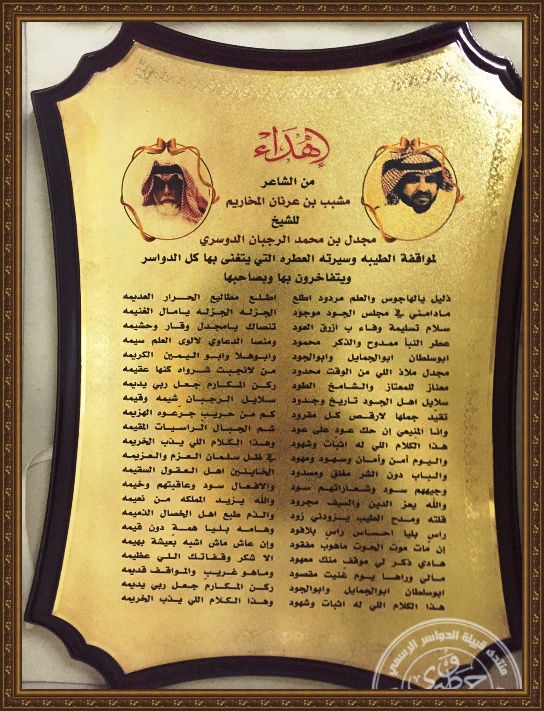 إهداء
من الشاعر
مشبب بن عرنان المخاريم
للشيخ
مجدل بن محمد الرجبان الدوسري
لمواقفة الطيبه وسيرته العطره التي يتغنى بها كل الدواسر
ويتفاخرون بها وبصاحبها
ذليل يالهاجوس والعلم مردود اطلع اطلع مطاليع الحرار العديمه
مادامني في مجلس الجود موجود الجزله الجزله يامال الغنيمه
سلام تسليمة وفاء ب ازرق العود تنساك يامجدل وقار وحشيمه
عطر النبا ممدوح والذكر محمود ومنصا الدعاوي لالوى العلم سيمه
ابوسلطان ابوالجمايل وابوالجود وابوهلا وابو اليمين الكريمه
مجدل ملاذ اللي من الوقت محدود من لانجبت شرواه كنها عقيمه
معناز للمعتاز والشامخ الطود ركن المكارم جعل ربي يديمه
سلايل اهل الجود تاريخ وجدود سلايل الرجبان شيمه وقيمه
تقيد جملها لارقص كل مقرود كم من حريب جرعوه الهزيمه
وانا المنيعي إن حك عود على عود شم الجبال الراسيات المقيمه
هذا الكلام اللي له اثبات وشهود وهذا الكلام اللي يذب الخريمه
واليوم أمن وأمان وسهود ومهود في ظل سلمان العزم والعزيمه
والباب دون الشر مغلق ومسدود الخاينين اهل العقول السقيمه
وجيههم سود وشعاراتهم سود والافعال سود وعاقبتهم وخيمه
والله يعز الدين والسيف مجرود والله يزيد المملكه من نعيمه
قلته ومدح الطيب يزودني زود والذم طبع اهل الخصال الذميمه
راس بليا احساس راس بلافود وهامه بليا همة دون قيمه
إن مات موت الحوت ماهوب مفقود وإن عاش ماش اشبه بعيشة بهيمه
هادي ذكر لي موقف منك معهود الا شكر وقفاتك اللي عظيمه
مالي وراها يوم غنيت مقصود وماهو غريب والمواقف قديمه
ابوسلطان ابوالجمايل وابوالجود ركن المكارم جعل ربي يديمه
هذا الكلام اللي له اثبات وشهود وهذا الكلام اللي يذب الخريمه
منتدى قبيلة الدواسر الرسمي